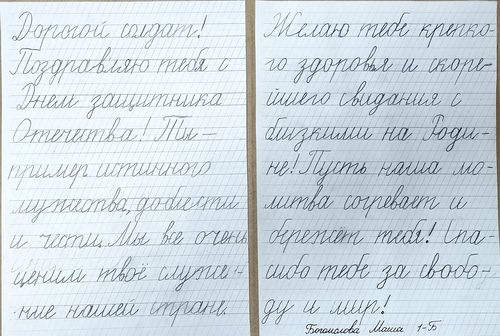 Дорогой солдат!
Поздравляю тебя с
Днем защитника
Отечества! Ты –
пример истинного
мужества, доблести
и чести. Мы все очень
ценим твоё служе-
ние нашей стране.
Желаю тебе крепко-
го здоровья и скоре-
йшего свидания с
близкими на Роди-
не! Пусть наша мо-
литва согревает и
бережет тебя! Спа-
сибо тебе за свобо-
ду и мир!
Богомолова Маша 1-Б